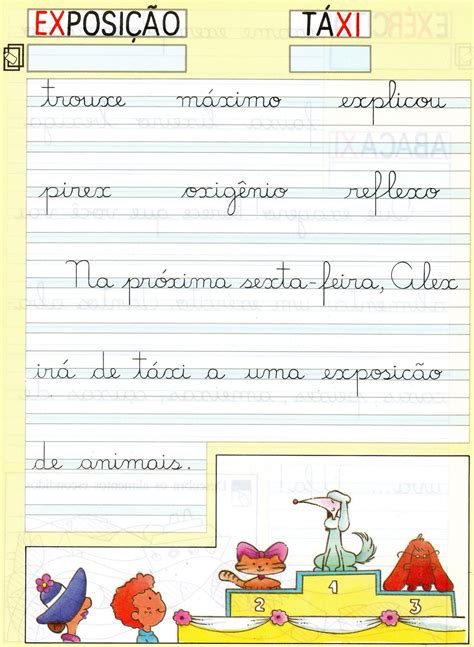 EXPOSIÇÃO TÁXI
trouxe máximo explicou
pirex oxigênio reflexo
Na próxima sexta-feira, Alex
irá de táxi a uma exposição
de animais.
1
2 3